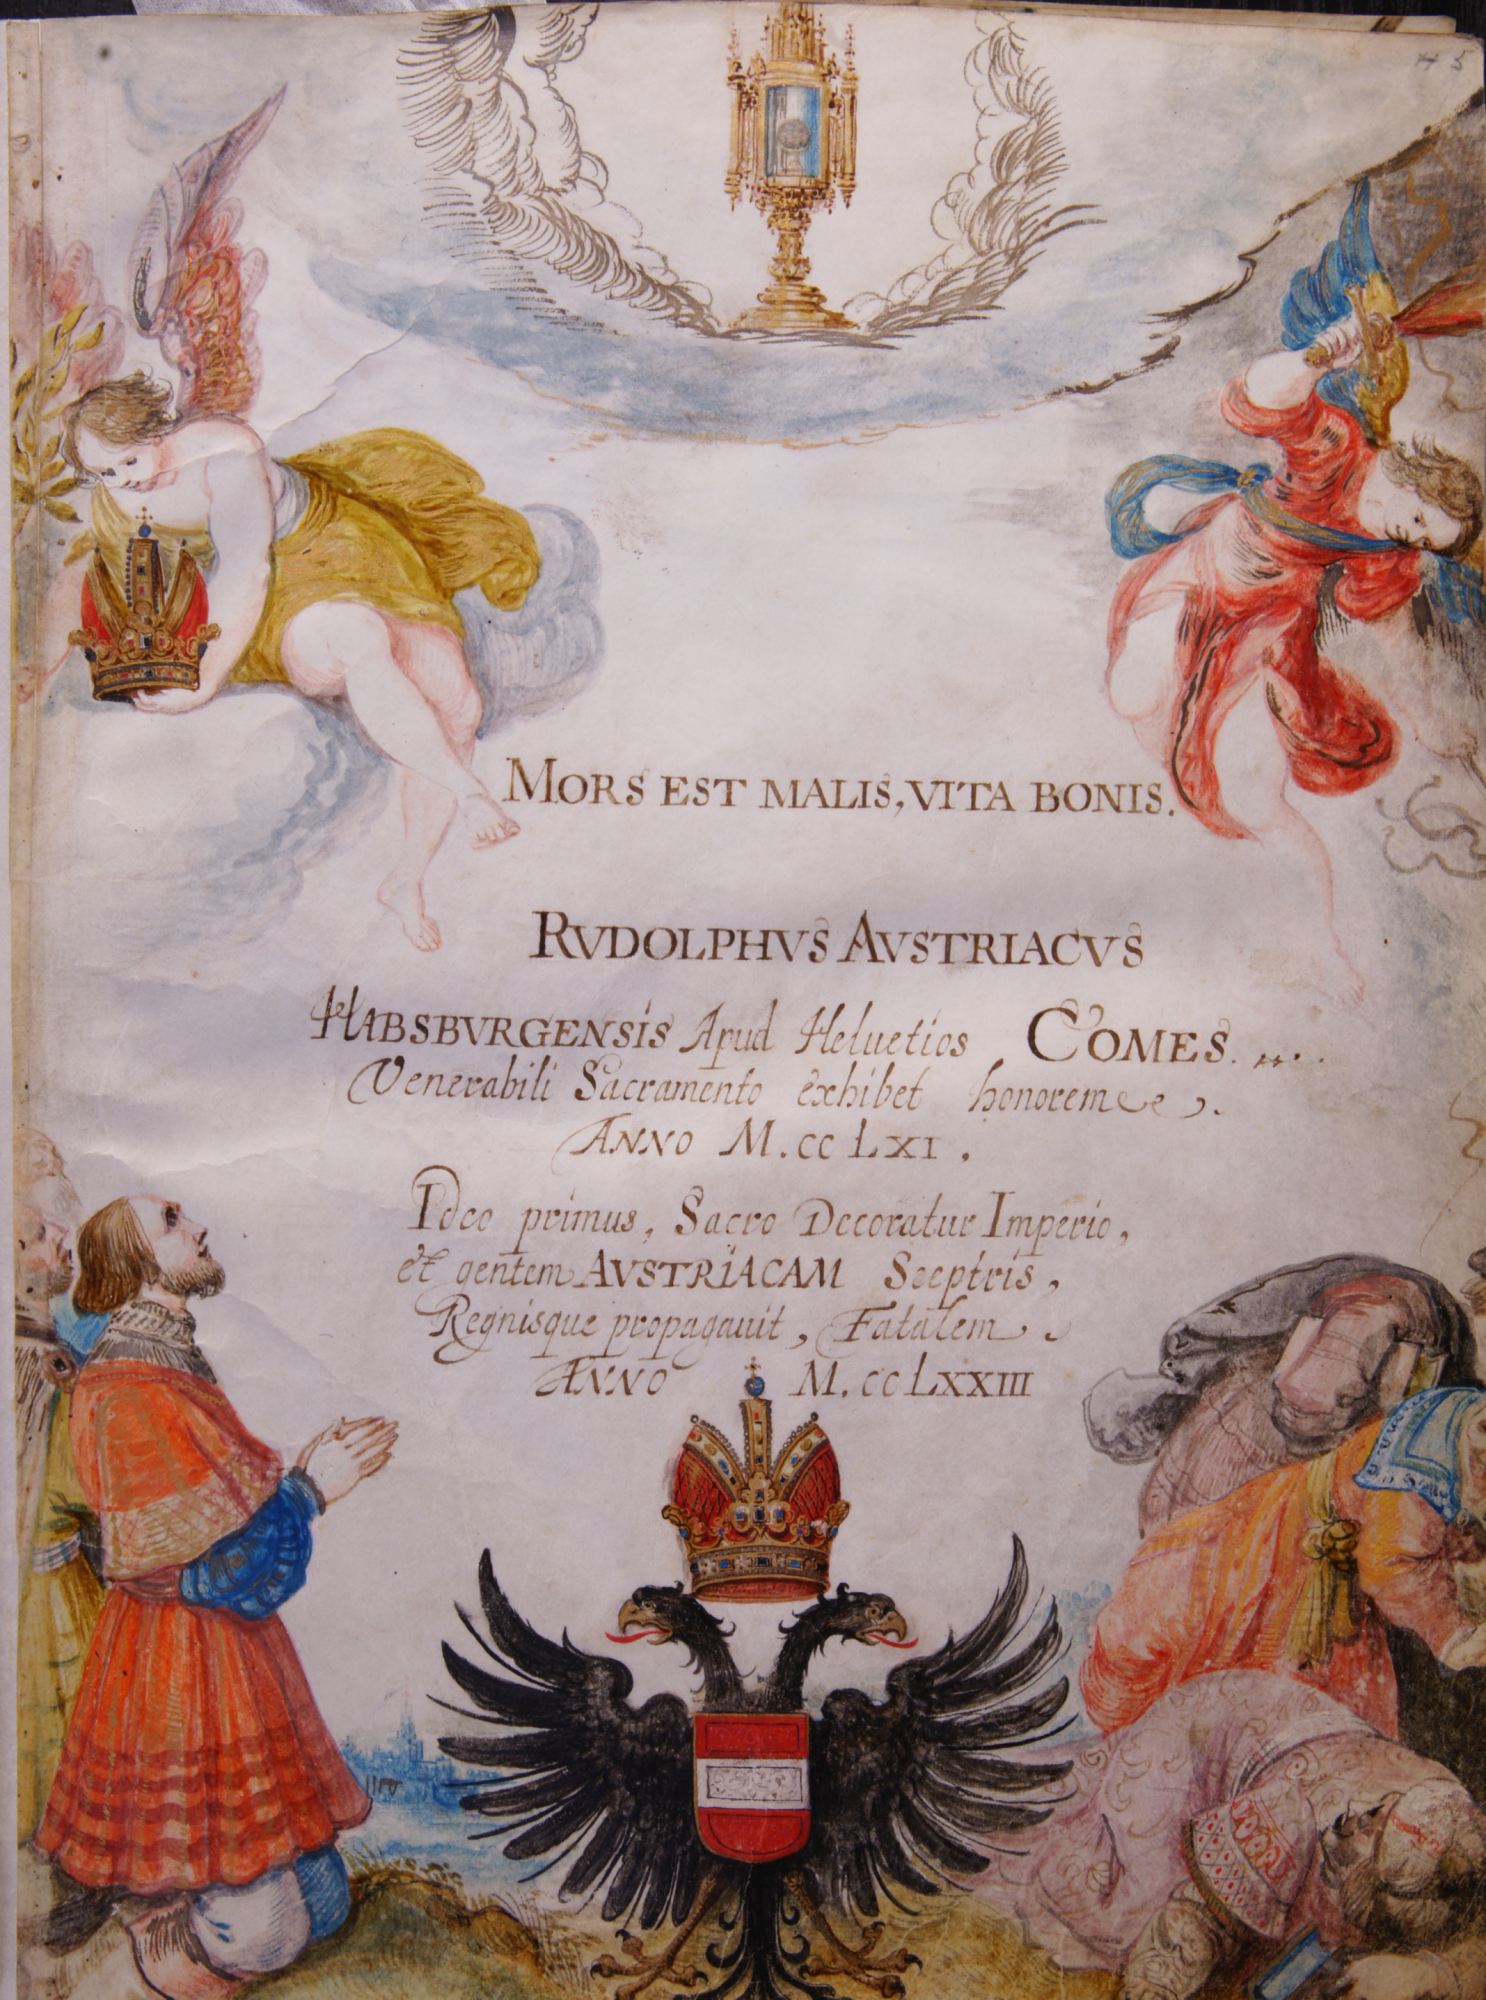 H 5
MORS EST MALIS, VITA BONIS.
RVDOLPHVS AVSTRIACVS
HABSBVRGENSIS Apud Heluetios COMES. ....
Venerabili Sacramento exhibet honorem
ANNO M.CC LXI.
Ideo primus, Sacro Decoratur Imperio,
et gentem AVSTRIACAM Sceptris,
Regnisque propagauit, Fatalem.
ANNO M.CC LXXIII